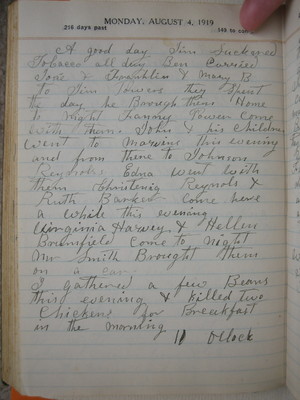 MONDAY, AUGUST 4, 1919
216 days past
149 to come
A good day Jim Suckered
Tobacco all day Ben Carried
Tom & Franklin & Mary B
to Jim Towers they Spent
the day he Borough them Home
to Night Fannie Power Come
with them John & his Children
went to Marvins this evening
and from there to Johnson
Reynolds Edna went with
them Christenia Reynols &
Ruth Barker Come here
a while this evening
Virginia Harvey & Hellen
Brumfield Come to Night
Mr Smith Brought them
on a car
I gathered a few Beans
this evening & Killed two
Chickens for Breekfast
in the morning 11 Oclock